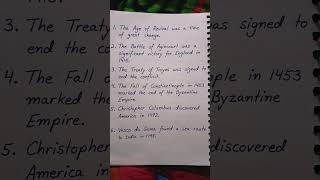 1. The Age of Revival was a time
of great change.
2. The Battle of Agincourt was a
significant victory for England in
1415.
3. The Treaty of Troyes was signed to
end the conflict.
4. The Fall of Constantinople in 1453
marked the end of the Byzantine
Empire.
5. Christopher Columbus discovered
America in 1492.
6. Vasco da Gama found a sea route
to India in 1498.
3. The Treaty
signed to
end the
4. The Fall
in 1453
marked
Byzantine
Empire.
5. Christop
discovered
America